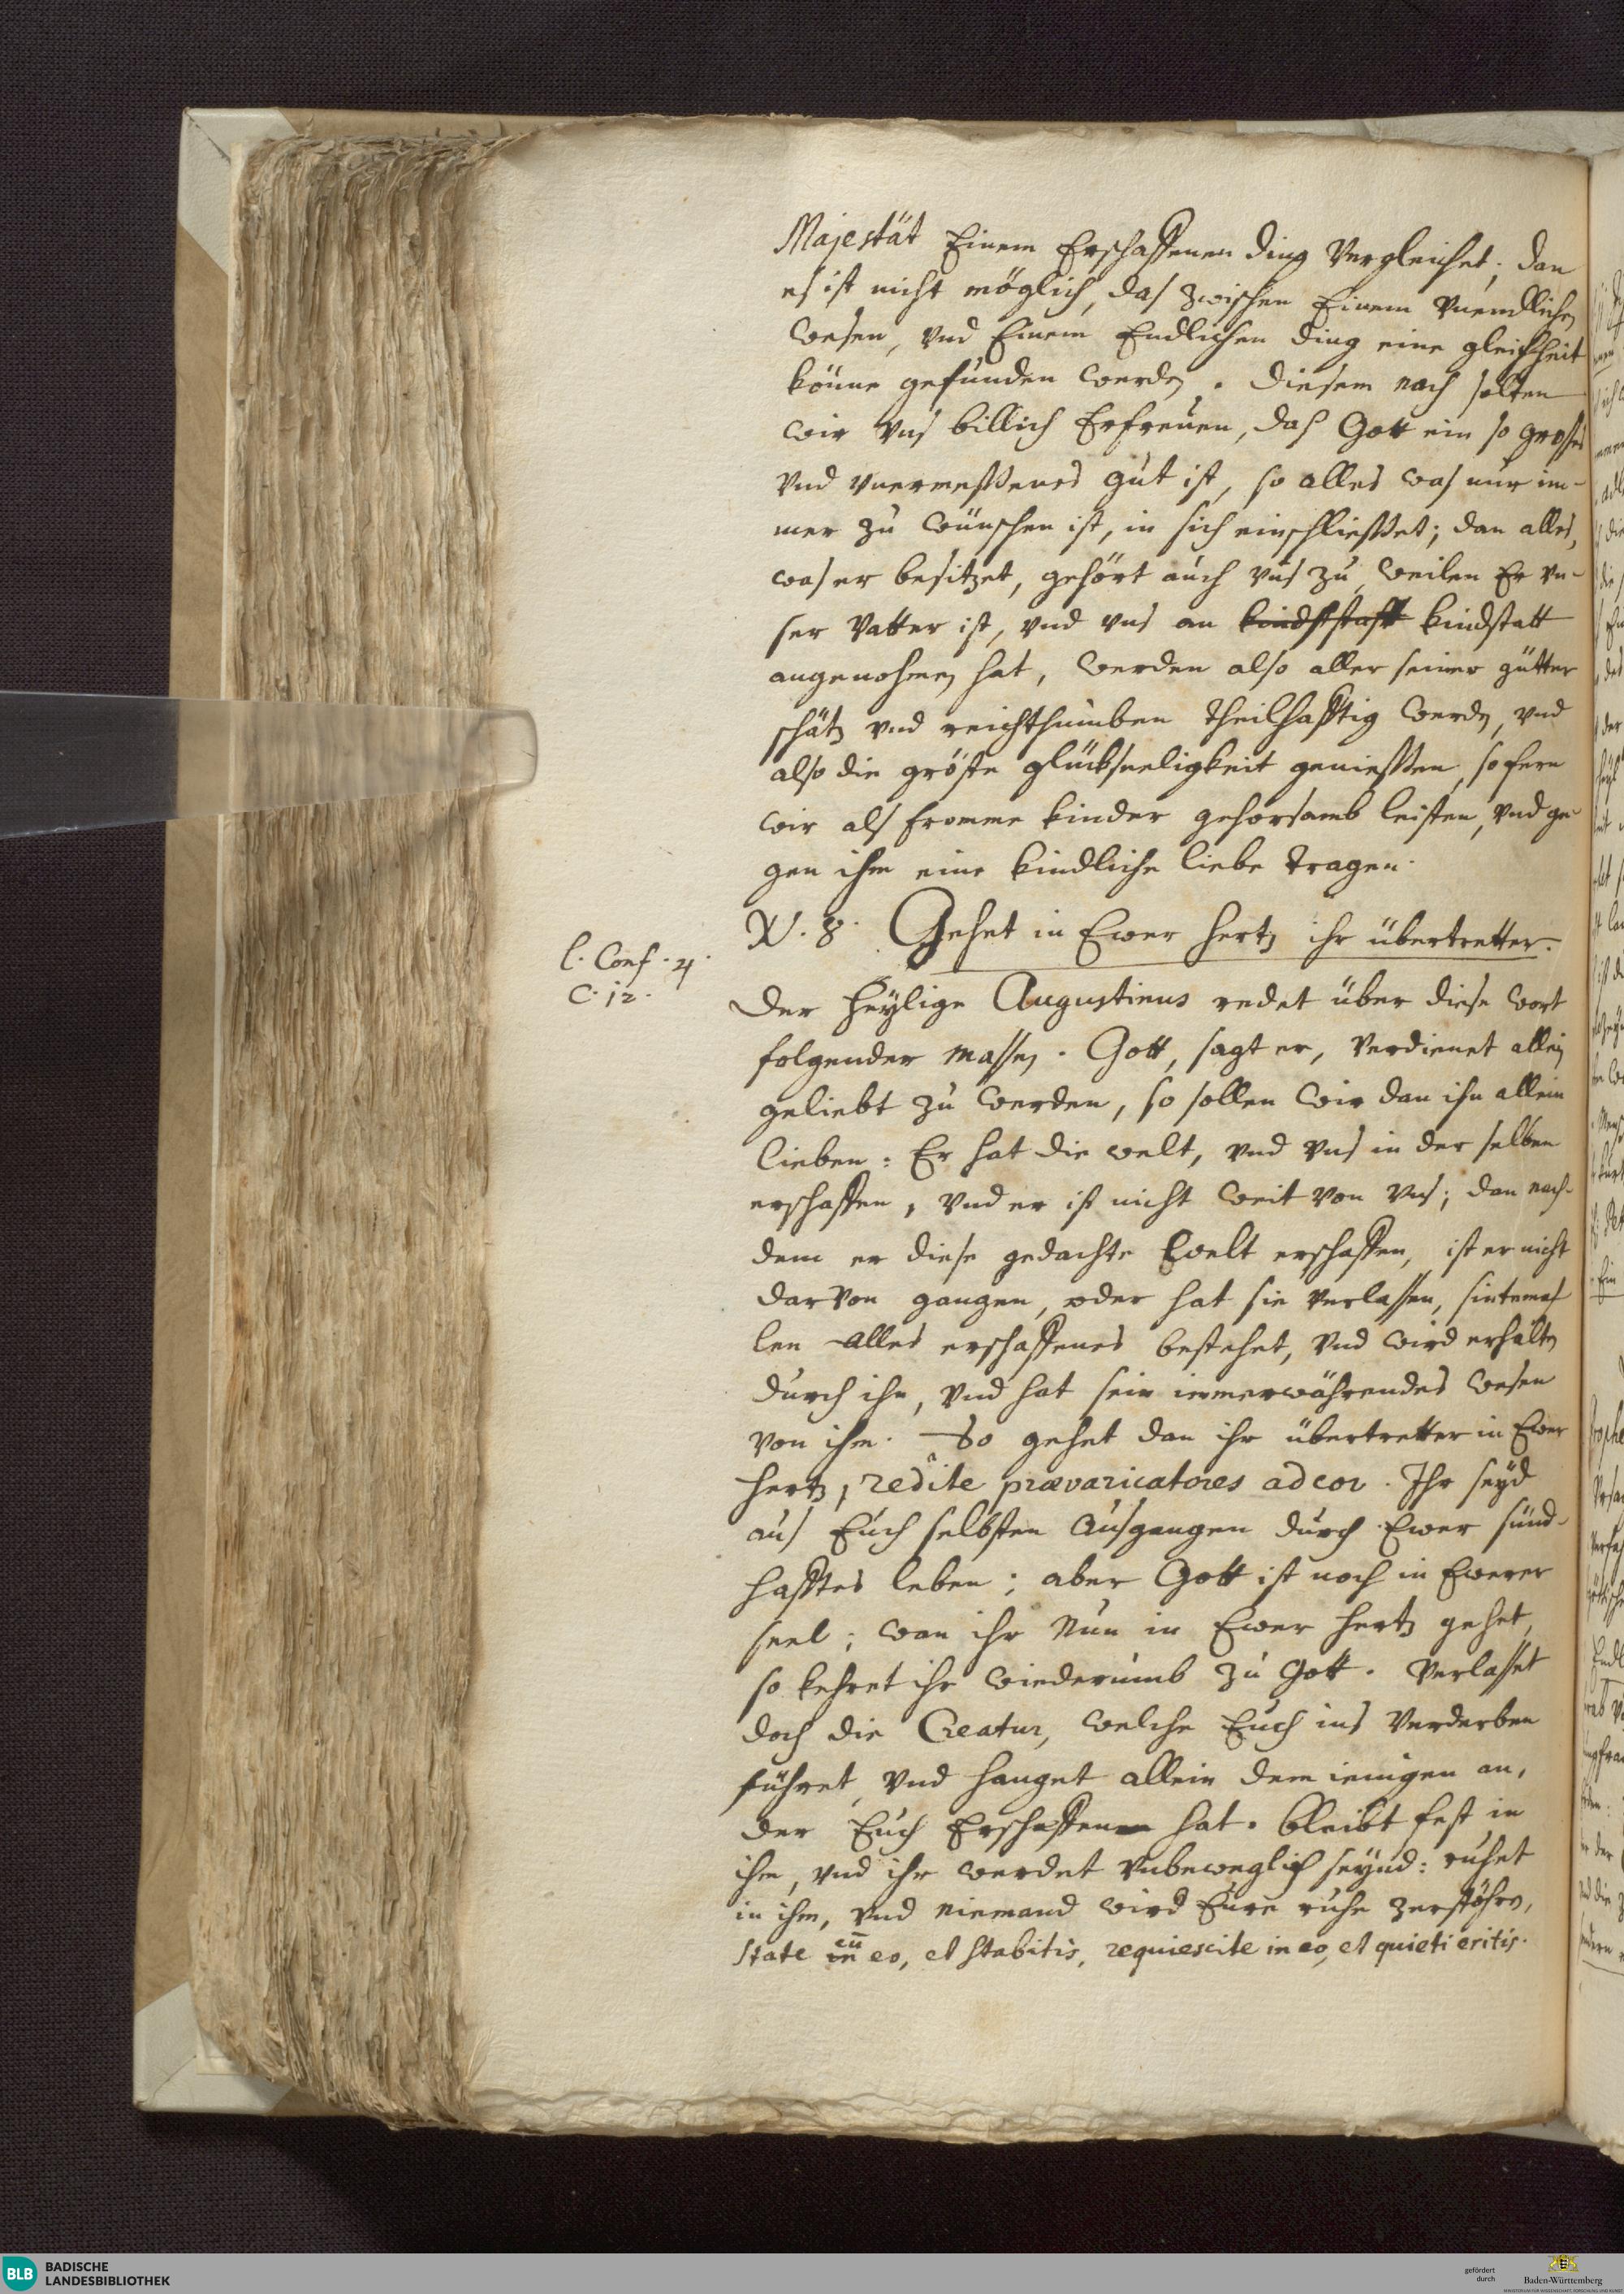 Majestät Einem Erschaffenen ding Vergleichet; dan
es ist nicht möglich, das zwischen Einem vnendlichen
wesen, vnd Einem Endlichen ding eine gleichheit
könne gefunden werden. Diesem nach solten
wir vns billich Erfreuen, das Gott ein so grosses
vnd vnermessenes gut ist, so alles was nur im-
mer zu wünschen ist, in sich einschliesset; dan alles,
was er besitzet, gehört auch vns zu, weilen Er vn-
ser Vatter ist, vnd vns an kindstatt
angenohmen hat, werden also aller seiner gütter
schätz vnd reichthumben theilhafftig werden, vnd
also die gröste glückseeligkeit geniessen, so fern
wir als fromme kinder gehorsamb leisten, vnd ge-
gen ihm eine kindliche liebe tragen.
V. 8. Gehet in Ewer hertz ihr übertretter.
l. Conf. 4.
C. 12.
Der heylige Augustinus redet über diese wort
folgender massen. Gott, sagt er, verdienet allein
geliebt zu werden, so sollen wir dan ihn allein
lieben: Er hat die welt, vnd vns in der selben
erschaffen, vnd er ist nicht weit von vns; dan nach-
dem er diese gedachte welt erschaffen, ist er nicht
darvon gangen, oder hat sie verlassen, sintemah
len alles erschaffenes bestehet, vnd wird erhalten
durch ihn, vnd hat sein immerwährendes wesen
von ihm. So gehet dan ihr übertretter in Ewer
hertz, redite prævaricatores ad cor. Ihr seyd
aus Euch selbsten ausgangen durch Ewer sünd-
hafftes leben; aber Gott ist noch in Ewerer
seel; wan ihr Nun in Ewer hertz gehet,
so kehret ihr wiederumb zu Gott. Verlasset
doch die Creatur, welche Euch ins verderben
führet, vnd hanget allein dem ienigen an,
der Euch Erschaffen hat. bleibt fest in
ihm, vnd ihr werdet vnbeweglich seynd: ruhet
in ihm, vnd niemand wird Eure ruhe zerstöhren,
state cū eo, et stabitis, requiescite in eo, et quieti eritis.
BLB BADISCHE
LANDESBIBLIOTHEK
gefördert
durch
Baden-Württemberg